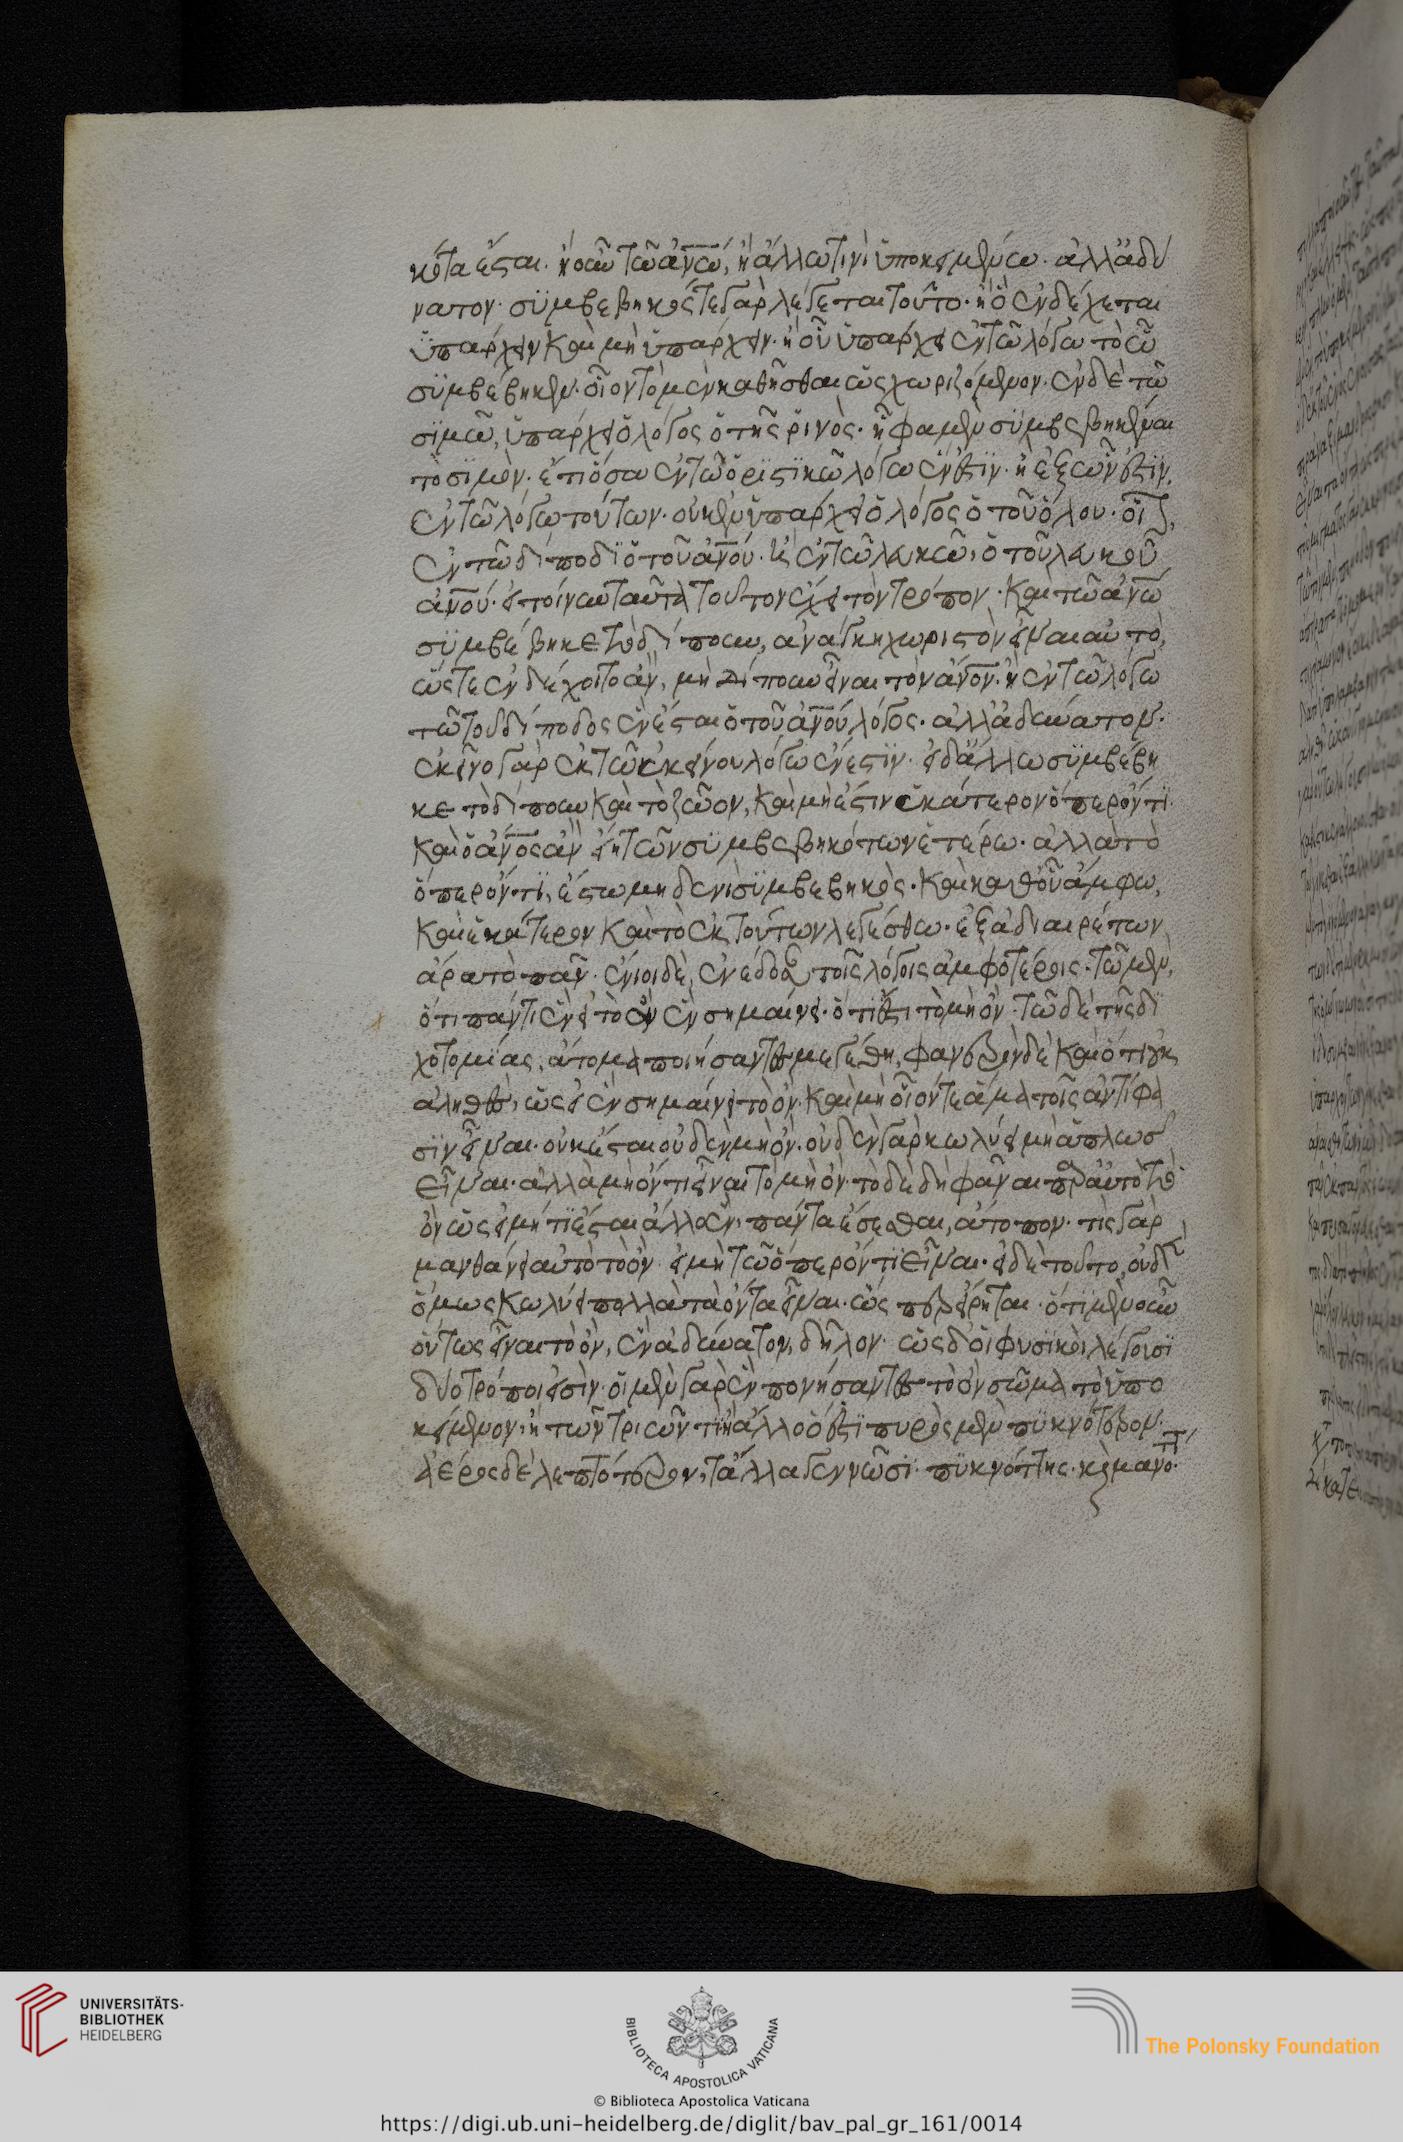 κότα ἔσται. ἤτοι τῶ ἀνῶ, ἢ ἄλλω τινὶ ὑποκειμένω. ἀλλ' ἀδύ
νατον. συμβεβηκός τε γὰρ λέγεται τοῦτο. ἢ ὃ ἐνδέχεται
ὑπάρχειν καὶ μὴ ὑπάρχειν. ἢ οὗ ὑπάρχει ἐν τῶ λόγω τὸ ὧ
συμβέβηκεν. οἷον τὸ μὲν καθῆσθαι ὡς χωριζόμενον. ἐν δὲ τῶ
σιμῶ, ὑπάρχει ὁ λόγος ὁ τῆς ῥινὸς. ἧ φαμὲν συμβεβηκέναι
τὸ σιμὸν. ἔτι ὅσα ἐν τῶ ὁριστικῶ λόγω ἔνεστιν. ἢ ἐξ ὧν ἐστιν,
ἐν τῶ λόγω τούτων. οὐκ ἐνυπάρχει ὁ λόγος ὁ τοῦ ὅλου. οἷον,
ἐν τῶ δίποδι ὁ τοῦ ἀνοῦ. ἢ ἐν τῶ λευκῶ, ὁ τοῦ λευκοῦ
ἀνοῦ. εἰ τοίνυν ταῦτα τοῦτον ἔχει τὸν τρόπον. καὶ τῶ ἀνῶ
συμβέβηκε τὸ δίπουν, ἀνάγκη χωριστὸν εἶναι αὐτὸ,
ὥστε ἐνδέχοιτο ἂν, μὴ δίπουν εἶναι τὸν ἄνον. ἢ ἐν τῶ λόγω
τῶ τοῦ δίποδος ἐνέσται ὁ τοῦ ἀνοῦ λόγος. ἀλλ' ἀδύνατον.
ἐκεῖνο γὰρ ἐν τῶ ἐκείνου λόγω ἔνεστιν. εἰ δ' ἄλλω συμβέβη
κε τὸ δίπουν καὶ τὸ ζῶον, καὶ μὴ ἔστιν ἑκάτερον ὅπερ ὄν τι.
καὶ ὁ ἄνος ἂν εἴη τῶν συμβεβηκότων ἑτέρω. ἀλλὰ τὸ
ὅπερ ὄν τι, ἔστω μηδενὶ συμβεβηκὸς. καὶ καθ' οὗ ἄμφω,
καὶ ἑκάτερον καὶ τὸ ἐκ τούτων λεγέσθω. ἐξ ἀδιαιρέτων
ἄρα τὸ πᾶν. ἔνιοι δὲ, ἐνέδοσαν τοῖς λόγοις ἀμφοτέροις. τῶ μὲν,
ὅτι πάντα ἓν εἰ τὸ ὂν ἓν σημαίνει. ὅτι ἔστι τὸ μὴ ὄν. τῶ δὲ τῆς δι
χοτομίας, ἄτομα ποιήσαντες μεγέθη, φανερὸν δὲ καὶ ὅτι οὐκ
ἀληθὲς, ὡς εἰ ἓν σημαίνει τὸ ὂν. καὶ μὴ οἷόν τε ἅμα τοῖς ἀντίφα
σιν εἶναι. οὐκ ἔσται οὐδὲν μὴ ὂν. οὐδὲν γὰρ κωλύει μὴ ἁπλῶς
εἶναι. ἀλλὰ μὴ ὄν τι εἶναι τὸ μὴ ὂν. τὸ δὲ δὴ φάναι παρ' αὐτὸ τὸ
ὂν ὡς εἰ μή τι ἔσται ἄλλο ἓν, πάντα ἔσεσθαι, ἄτοπον. τίς γὰρ
μανθάνει αὐτὸ τὸ ὂν εἰ μὴ τῶ ὅπερ ὄν τι εἶναι. εἰ δὲ τοῦτο, οὐδὲν
ὅμως κωλύει πολλὰ τὰ ὄντα εἶναι. ὡς περ εἴρηται. ὅτι μὲν οὖν
οὕτως εἶναι τὸ ὂν, ἓν ἀδύνατον, δῆλον. ὡς δ' οἱ φυσικοὶ λέγουσι
δύο τρόποι εἰσὶν. οἱ μὲν γὰρ ἓν ποιήσαντες τὸ ὂν σῶμα τὸ ὑπο
κείμενον, ἢ τῶν τριῶν τι ἢ ἄλλο ὅ ἐστι πυρὸς μὲν πυκνότερον.
ἀέρος δὲ λεπτότερον, τἄλλα γεννῶσι πυκνότητι. καὶ μανό.
UNIVERSITÄTS-
BIBLIOTHEK
HEIDELBERG
BIBLIOTECA APOSTOLICA VATICANA
The Polonsky Foundation
© Biblioteca Apostolica Vaticana
https://digi.ub.uni-heidelberg.de/diglit/bav_pal_gr_161/0014